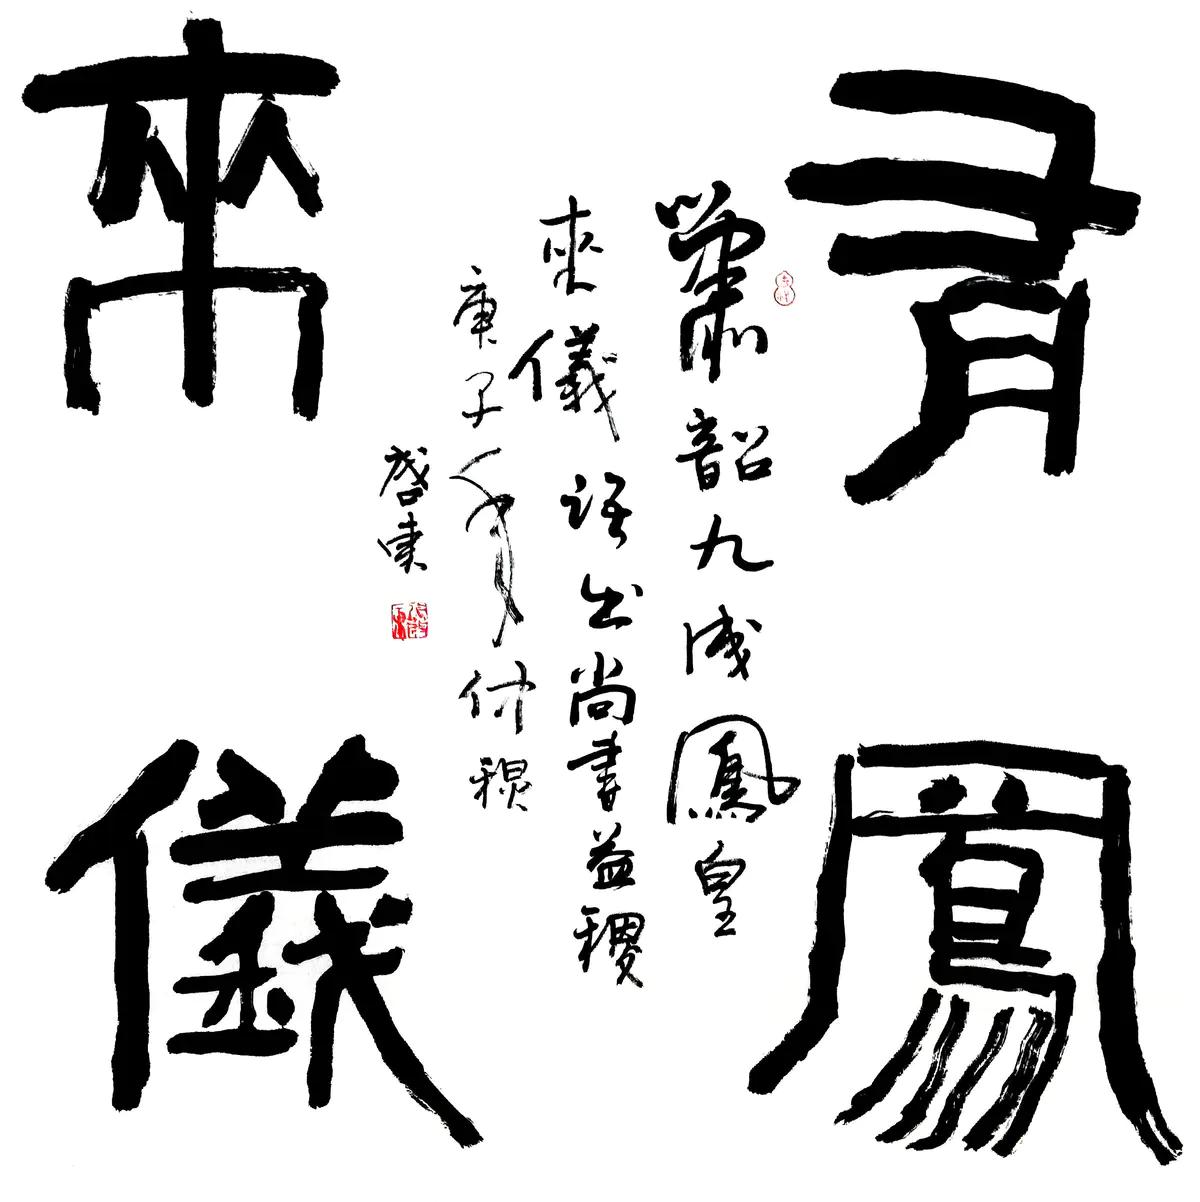 有鳳
來儀
簫韶九成鳳皇
來儀語出尚書益稷
庚子年仲穐
啓